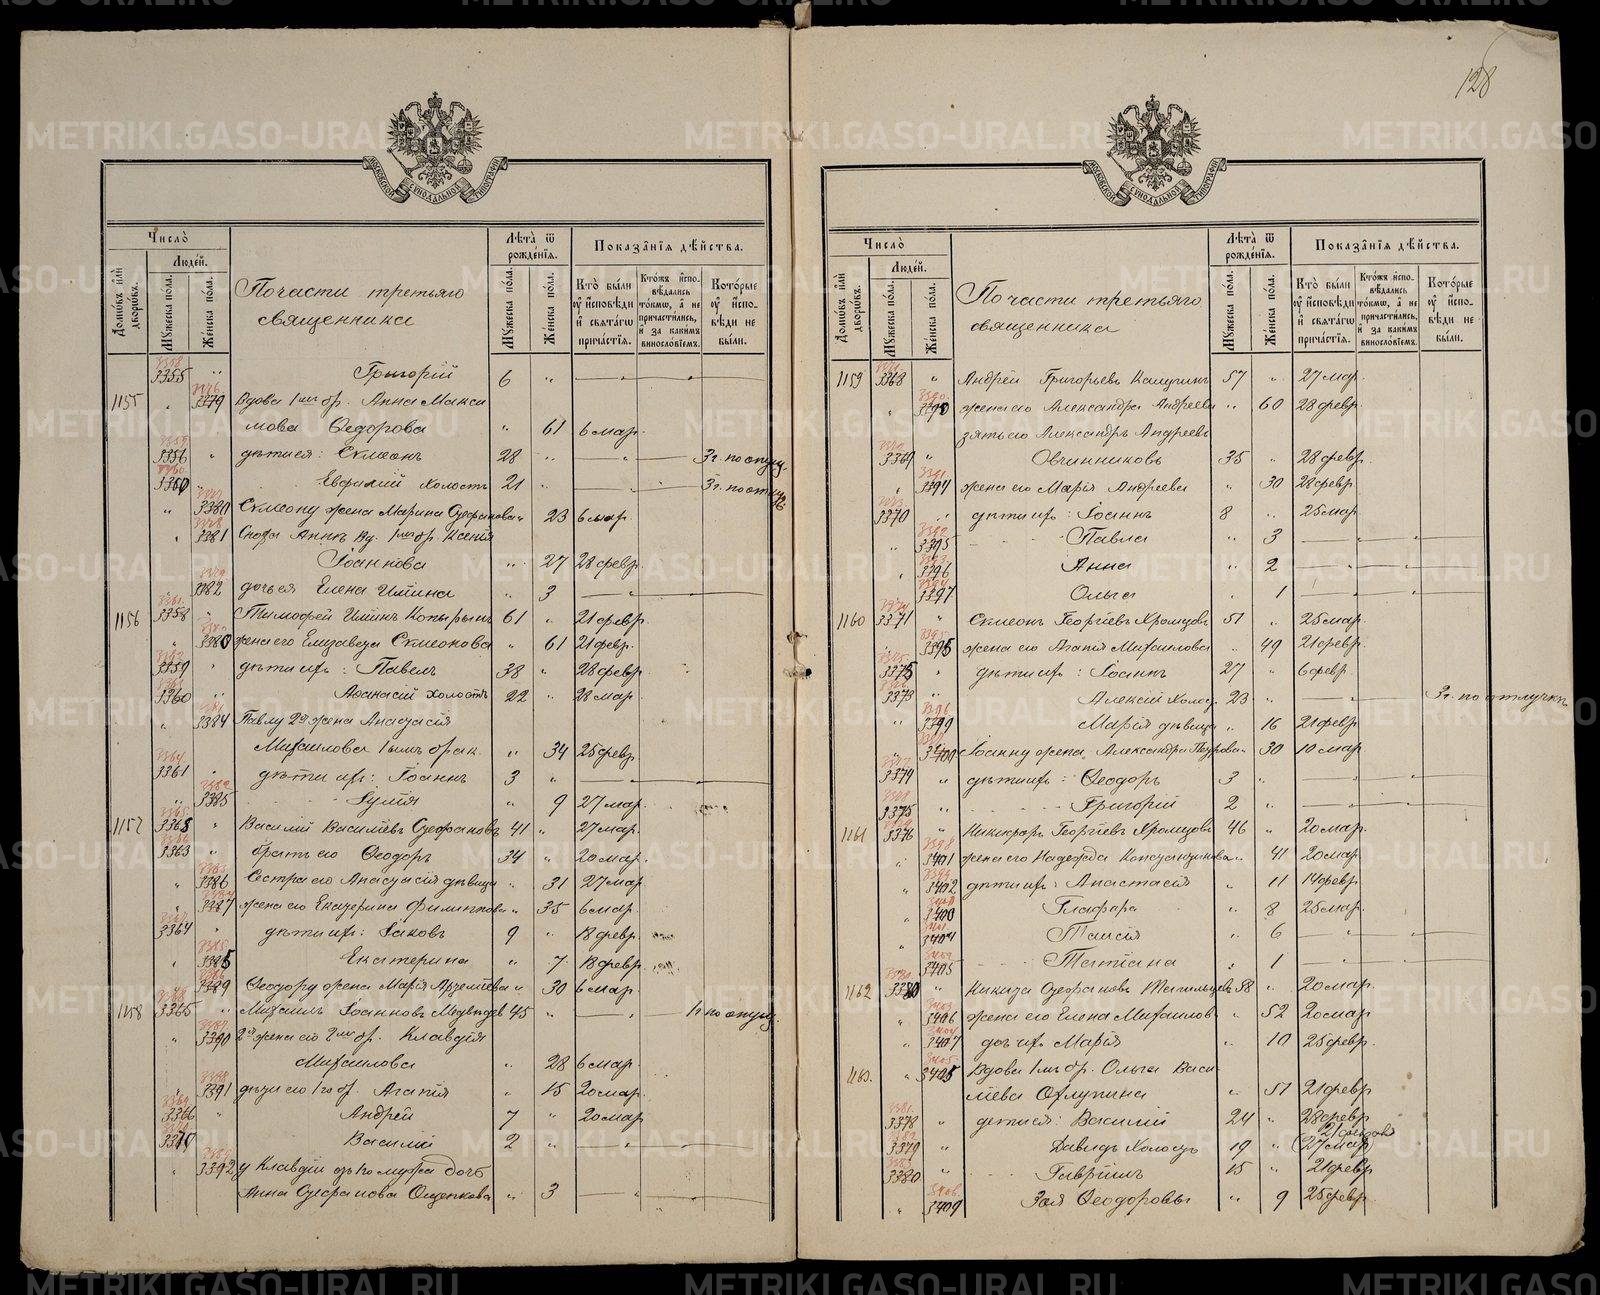 128
МОСКОВСКОЙ СѴНОДАЛЬНОЙ ТИПОГРАФІИ
Число̀
Людей.
Домѡвъ и҆лѝ дворѡвъ.
Мꙋжеска пола.
Же́нска пола.
По части третьяго
священника
Лѣта̀ ѿ рожде́нїѧ.
Мꙋжеска пола.
Же́нска пола.
Показа̑нїѧ дѣ́йства.
Кто̀ бы́ли ᲂу҆ и҆сповѣди и҆ свѧта́гѡ прича́стїѧ.
Кто́жъ и҆спо-вѣдались то́кмѡ, а҆ не причасти́лись, и҆ за каки́мъ винослові́емъ.
Кото́рые ᲂу҆ и҆спо-вѣди не бы́ли.
3355 " Григорій 6 "
1155 " 3379 Вдова 1мъ бр. Анна Макси
мова Ѳедорова " 61 6 мар.
3356 " дѣти ея: Сѵмеонъ 28 " 3 г. по отлуч.
" Евфимій холостъ 21 " 3 г. по отлуч.
" 3380 Сѵмеону жена Марина Стефанова " 23 6 мар.
" 3381 Сноха Анны вд. 1мъ бр. Ксенія
Іоаннова " 27 28 февр.
3382 дочь ея Елена Ильина " 3
1156 3358 " Тимофей Ильинъ Копыринъ 61 " 21 февр.
" жена его Елизавета Сѵмеонова " 61 21 февр.
3359 " дѣти ихъ: Павелъ 38 " 28 февр.
3360 " Аѳанасій холостъ 22 " 28 мар.
" 3384 Павлу 2я жена Анастасія
Михаилова 1ымъ брак. " 34 25 февр.
3361 " дѣти ихъ: Іоаннъ 3 "
" 3385 Іулія " 9 27 мар.
1157 " Василій Василіевъ Стефановъ 41 " 27 мар.
3363 " братъ его Ѳеодоръ 34 " 20 мар.
" 3386 Сестра его Анастасія дѣвица " 31 27 мар.
" 3387 жена его Екатерина Филиппова " 35 6 мар.
3364 " дѣти ихъ: Іаковъ 9 " 18 февр.
" Екатерина " 7 18 февр.
3389 Ѳеодору жена Марія Артеміева " 30 6 мар.
1158 3365 " Михаилъ Іоанновъ Медведев 45 " 1 г. по отлуч.
" 3390 2я жена его 2мъ бр. Клавдія
Михаилова " 28 6 мар.
3391 дѣти его 1го бр. Агапія " 15 20 мар.
3366 " Андрей 7 " 20 мар
Василій 2 "
" 3392 у Клавдіи отъ 1го мужа дочь
Анна Стефанова Ощепкова " 3
Число̀
Людей.
Домѡвъ и҆лѝ дворѡвъ.
Мꙋжеска пола.
Же́нска пола.
По части третьяго
священника
Лѣта̀ ѿ рожде́нїѧ.
Мꙋжеска пола.
Же́нска пола.
Показа̑нїѧ дѣ́йства.
Кто̀ бы́ли ᲂу҆ и҆сповѣди и҆ свѧта́гѡ прича́стїѧ.
Кто́жъ и҆спо-вѣдались то́кмѡ, а҆ не причасти́лись, и҆ за каки́мъ винослові́емъ.
Кото́рые ᲂу҆ и҆спо-вѣди не бы́ли.
1159 3368 " Андрей Григорьевъ Калугинъ 57 " 27 мар.
" жена его Александра Андреева " 60 28 февр.
зять его Александръ Андреевъ
3369 " Овчинниковъ 35 " 28 февр.
" 3394 жена его Марія Андреева " 30 28 февр.
3370 " дѣти ихъ: Іоаннъ 8 " 25 мар
" 3395 Павла " 3
" 3396 Анна " 2
3397 Ольга " 1
1160 3371 " Сѵмеонъ Георгіевъ Хромцовъ 51 " 25 мар.
жена его Агапія Михаилова " 49 21 февр.
" дѣти ихъ: Іоаннъ 27 " 6 февр.
3373 " Алексій холос. 23 " 3 г. по отлучкѣ
" 3399 Марія дѣвица " 16 21 февр
" Іоанну жена Александра Петрова " 30 10 мар
3374 " дѣти ихъ: Ѳеодоръ 3 "
3375 " Григорій 2 "
1161 3376 " Никифоръ Георгіевъ Хромцовъ 46 " 20 мар.
" 3401 жена его Надежда Константинова " 41 20 мар.
" 3402 дѣти ихъ: Анастасія " 11 14 февр.
" Глафира " 8 25 мар.
" 3404 Таисія " 6
3405 Татіана " 1
1162 " Никита Стефановъ Тагильцевъ 58 " 20 мар.
" 3406 жена его Елена Михаилов. " 52 20 мар
" 3407 дочь ихъ Марія " 10 25 февр.
1163. " Вдова 1мъ бр. Ольга Васи
ліева Охлупина " 51 21 февр
3378 " дети ея: Василій 24 " 28 февр
3379 " Давидъ холостъ 19 " (27 мар)
3380 " Гавріилъ 15 " 21 февр
" 3409 Зоя Ѳеодоровы " 9 25 февр.
METRIKI.GASO-URAL.RU